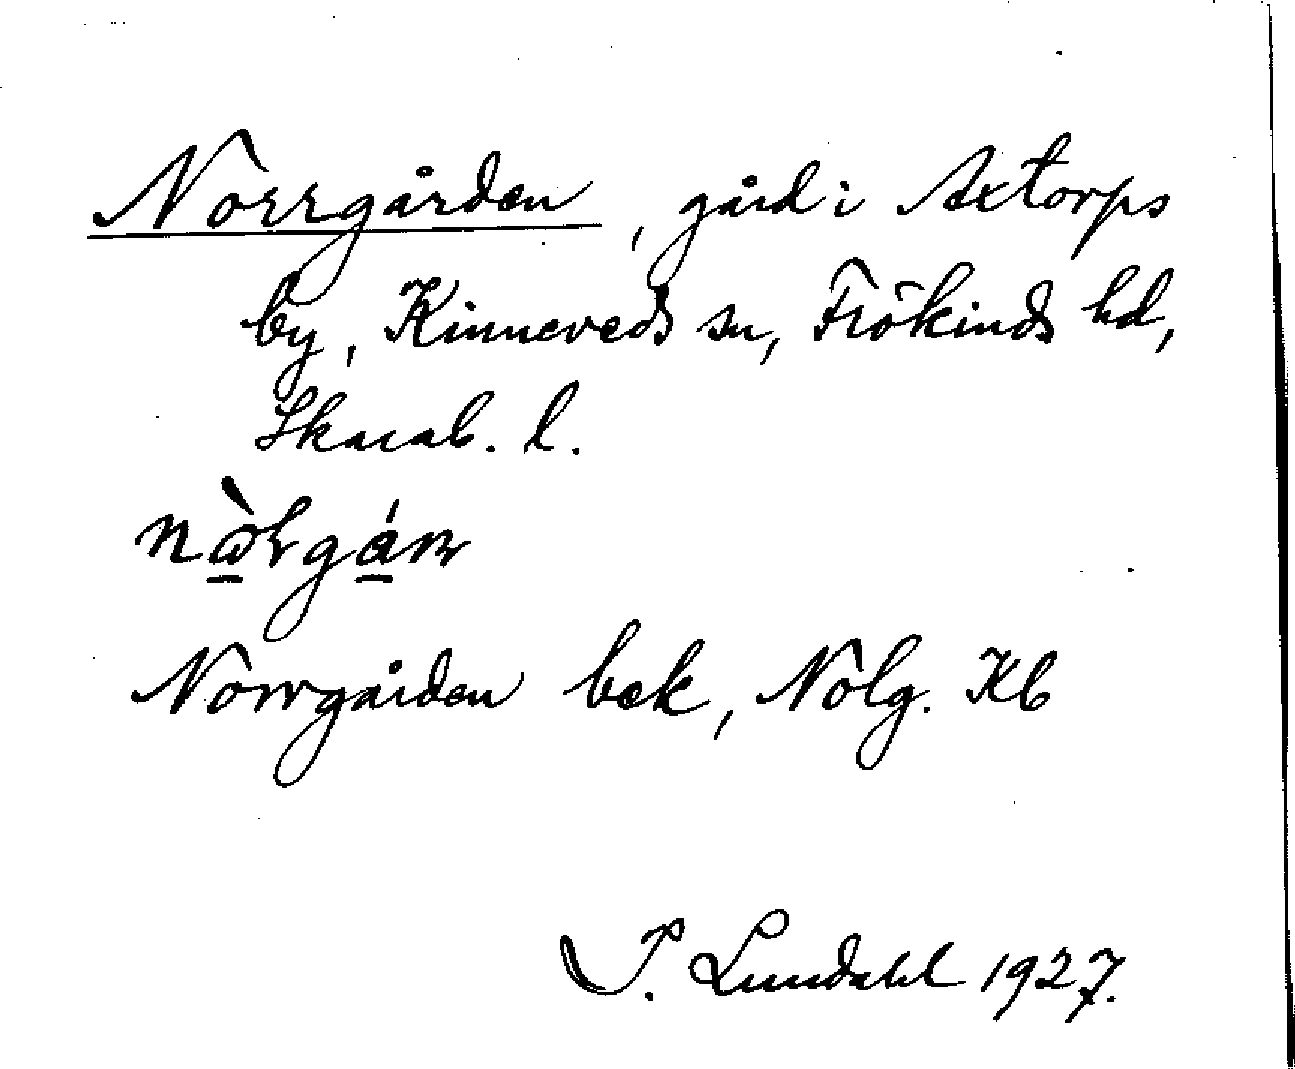 Norrgården, gård i Axtorps
by, Kinneveds sn, Frökinds hd,
Skarab. l.
Norrgården bek, Nolg. Kb
P. Lundahl 1927.